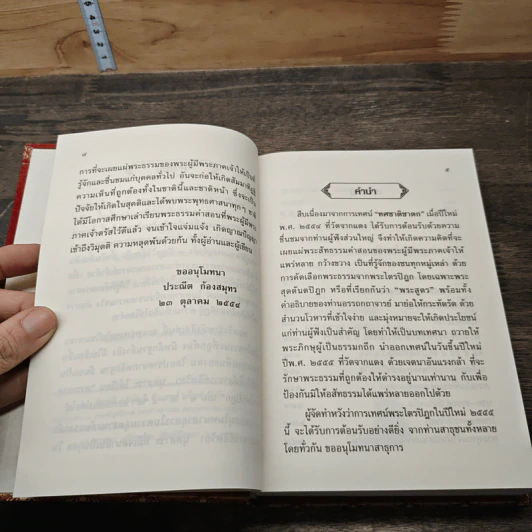 ๘
การที่จะเผยแผ่พระธรรมของพระผู้มีพระภาคเจ้าให้เป็นที่
รู้จักและชื่นชมแก่บุคคลทั่วไป อันจะก่อให้เกิดสัมมาทิฏฐิ
ความเห็นที่ถูกต้องทั้งในชาตินี้และชาติหน้า ซึ่งจะเป็น
ปัจจัยให้เกิดในสุคติและได้พบพระพุทธศาสนาทุกๆ ชาติ
ได้มีโอกาสศึกษาเล่าเรียนพระธรรมคำสอนที่พระผู้มีพระ
ภาคเจ้าตรัสไว้ดีแล้ว จนเข้าใจแจ่มแจ้ง เกิดญาณปัญญา
เข้าถึงวิมุตติ ความหลุดพ้นด้วยกัน ทั้งผู้อ่านและผู้เขียน
ขออนุโมทนา
ประณีต ก้องสมุทร
๒๓ ตุลาคม ๒๕๕๔
๕
คำนำ
สืบเนื่องมาจากการเทศน์ "ทศชาติชาดก" เมื่อปีใหม่
พ.ศ. ๒๕๕๔ ที่วัดจากแดง ได้รับการต้อนรับด้วยความ
ชื่นชมจากท่านผู้ฟังส่วนใหญ่ จึงทำให้เกิดความคิดที่จะ
เผยแผ่พระสัทธรรมคำสอนของพระผู้มีพระภาคเจ้าให้
แพร่หลาย กว้างขวาง เป็นที่รู้จักของชนทุกหมู่เหล่า ด้วย
การคัดเลือกพระธรรมจากพระไตรปิฎก โดยเฉพาะพระ
สุตตันตปิฎก หรือที่เรียกกันว่า "พระสูตร" พร้อมทั้ง
คำอธิบายของท่านอรรถกถาจารย์ มาย่อให้กระทัดรัด ด้วย
สำนวนโวหารที่เข้าใจง่าย และมุ่งหมายจะให้เกิดประโยชน์
แก่ท่านผู้ฟังเป็นสำคัญ โดยทำให้เป็นบทเทศนา ถวายให้
พระภิกษุผู้เป็นธรรมกถึก นำออกเทศน์ในวันขึ้นปีใหม่
ปีพ.ศ. ๒๕๕๕ ที่วัดจากแดง ด้วยเจตนาอันแรงกล้า ที่จะ
รักษาพระธรรมที่ถูกต้องให้ดำรงอยู่นานเท่านาน กับเพื่อ
ป้องกันมิให้อสัทธรรมได้แพร่หลายออกไปด้วย
ผู้จัดทำหวังว่าการเทศน์พระไตรปิฎกในปีใหม่ ๒๕๕๕
นี้ จะได้รับการต้อนรับอย่างดียิ่ง จากท่านสาธุชนทั้งหลาย
โดยทั่วกัน ขออนุโมทนาสาธุการ